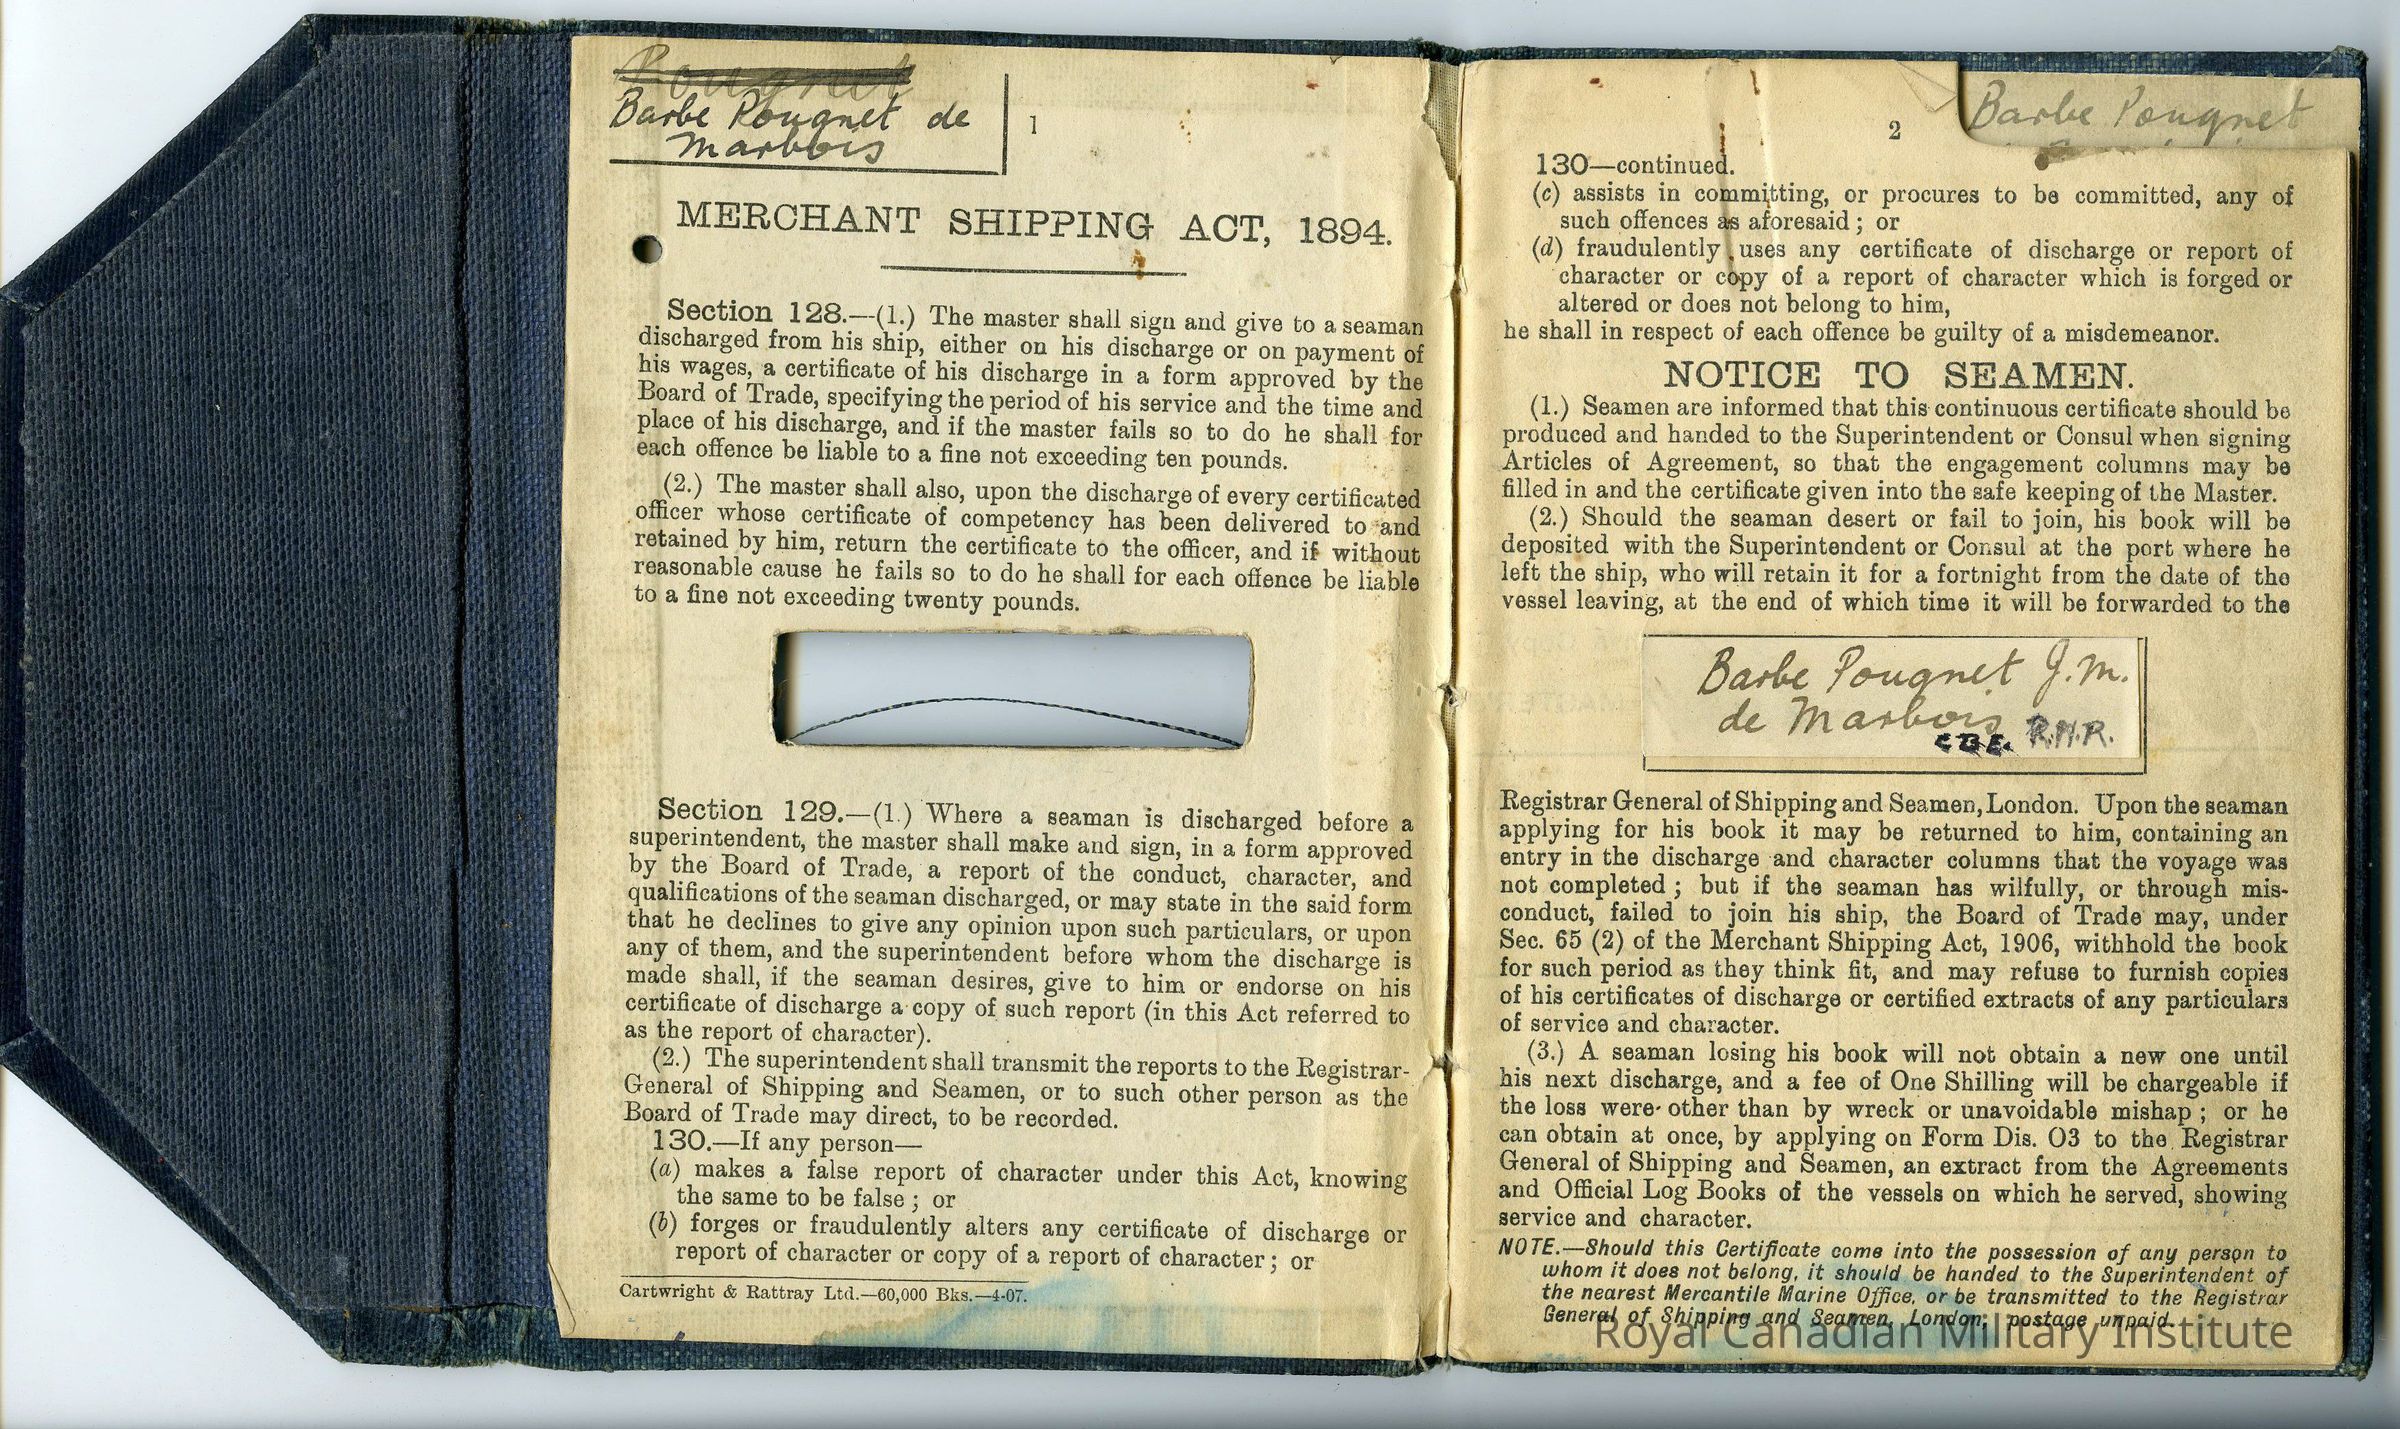 Pougnet
Barbe Pougnet de
Marbois
1
MERCHANT SHIPPING ACT, 1894.
Section 128.—(1.) The master shall sign and give to a seaman
discharged from his ship, either on his discharge or on payment of
his wages, a certificate of his discharge in a form approved by the
Board of Trade, specifying the period of his service and the time and
place of his discharge, and if the master fails so to do he shall for
each offence be liable to a fine not exceeding ten pounds.
(2.) The master shall also, upon the discharge of every certificated
officer whose certificate of competency has been delivered to and
retained by him, return the certificate to the officer, and if without
reasonable cause he fails so to do he shall for each offence be liable
to a fine not exceeding twenty pounds.
Section 129.—(1.) Where a seaman is discharged before a
superintendent, the master shall make and sign, in a form approved
by the Board of Trade, a report of the conduct, character, and
qualifications of the seaman discharged, or may state in the said form
that he declines to give any opinion upon such particulars, or upon
any of them, and the superintendent before whom the discharge is
made shall, if the seaman desires, give to him or endorse on his
certificate of discharge a copy of such report (in this Act referred to
as the report of character).
(2.) The superintendent shall transmit the reports to the Registrar-
General of Shipping and Seamen, or to such other person as the
Board of Trade may direct, to be recorded.
130.—If any person—
(a) makes a false report of character under this Act, knowing
the same to be false; or
(b) forges or fraudulently alters any certificate of discharge or
report of character or copy of a report of character; or
Cartwright & Rattray Ltd.—60,000 Bks.—4-07.
2
Barbe Pougnet
130—continued.
(c) assists in committing, or procures to be committed, any of
such offences as aforesaid; or
(d) fraudulently uses any certificate of discharge or report of
character or copy of a report of character which is forged or
altered or does not belong to him,
he shall in respect of each offence be guilty of a misdemeanor.
NOTICE TO SEAMEN.
(1.) Seamen are informed that this continuous certificate should be
produced and handed to the Superintendent or Consul when signing
Articles of Agreement, so that the engagement columns may be
filled in and the certificate given into the safe keeping of the Master.
(2.) Should the seaman desert or fail to join, his book will be
deposited with the Superintendent or Consul at the port where he
left the ship, who will retain it for a fortnight from the date of the
vessel leaving, at the end of which time it will be forwarded to the
Barbe Pougnet J. M.
de Marbois
C.B.E. R.N.R.
Registrar General of Shipping and Seamen, London. Upon the seaman
applying for his book it may be returned to him, containing an
entry in the discharge and character columns that the voyage was
not completed; but if the seaman has wilfully, or through mis-
conduct, failed to join his ship, the Board of Trade may, under
Sec. 65 (2) of the Merchant Shipping Act, 1906, withhold the book
for such period as they think fit, and may refuse to furnish copies
of his certificates of discharge or certified extracts of any particulars
of service and character.
(3.) A seaman losing his book will not obtain a new one until
his next discharge, and a fee of One Shilling will be chargeable if
the loss were other than by wreck or unavoidable mishap; or he
can obtain at once, by applying on Form Dis. O3 to the Registrar
General of Shipping and Seamen, an extract from the Agreements
and Official Log Books of the vessels on which he served, showing
service and character.
NOTE.—Should this Certificate come into the possession of any person to
whom it does not belong, it should be handed to the Superintendent of
the nearest Mercantile Marine Office, or be transmitted to the Registrar
General of Shipping and Seamen, London, postage unpaid.
Royal Canadian Military Institute